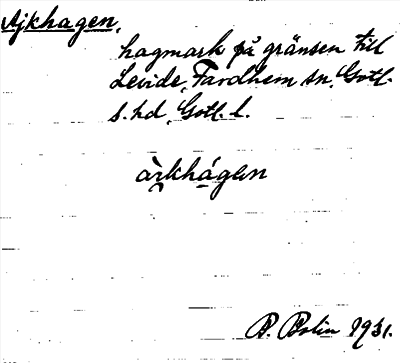 Ajkhagen,
hagmark på gränsen till
Levide, Fardhem sn, Gotl.
s. hd, Gotl. l.
àɪkhágen
B. Bolin 1931.